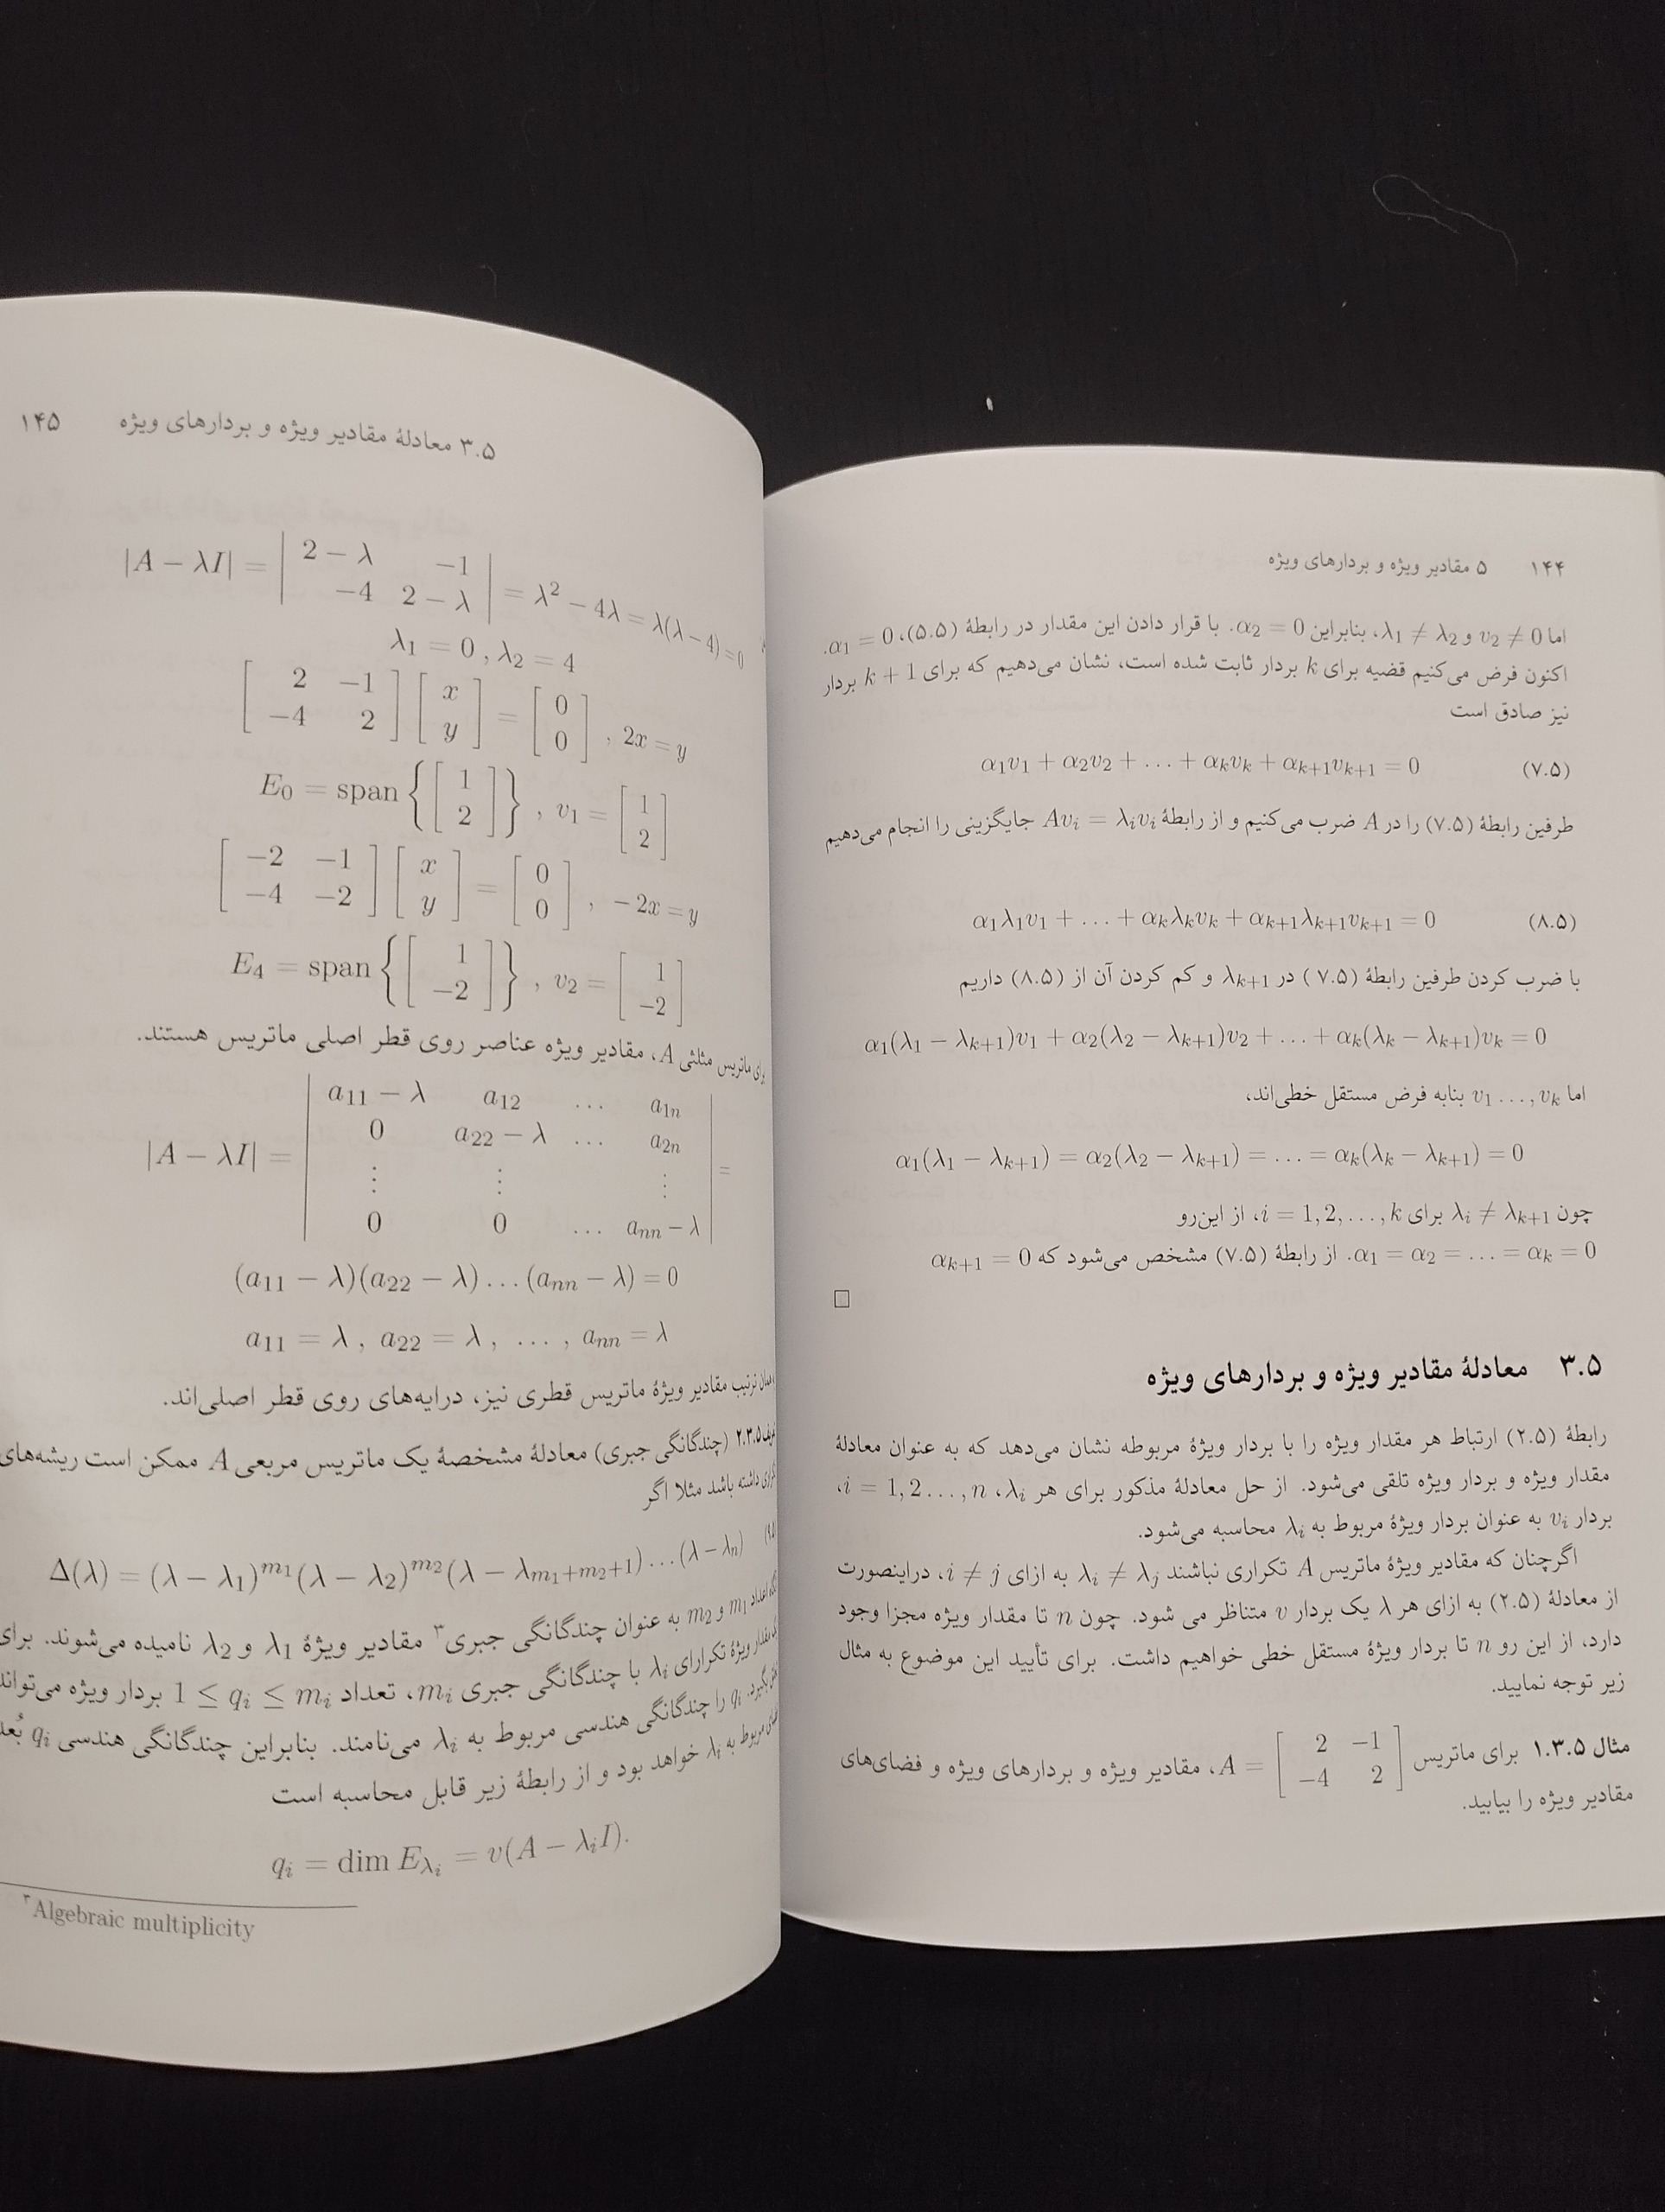 ۱۴۴ ۵ مقادیر ویژه و بردارهای ویژه
اما v₂ ≠ 0 و λ₁ ≠ λ₂، بنابراین α₂ = 0. با قرار دادن این مقدار در رابطهٔ (۵.۵)، α₁ = 0.
اکنون فرض می‌کنیم قضیه برای k بردار ثابت شده است، نشان می‌دهیم که برای k + 1 بردار
نیز صادق است
α₁v₁ + α₂v₂ + ... + αₖvₖ + αₖ₊₁vₖ₊₁ = 0 (۷.۵)
طرفین رابطهٔ (۷.۵) را در A ضرب می‌کنیم و از رابطهٔ Avᵢ = λᵢvᵢ جایگزینی را انجام می‌دهیم
α₁λ₁v₁ + ... + αₖλₖvₖ + αₖ₊₁λₖ₊₁vₖ₊₁ = 0 (۸.۵)
با ضرب کردن طرفین رابطهٔ (۷.۵ ) در λₖ₊₁ و کم کردن آن از (۸.۵) داریم
α₁(λ₁ − λₖ₊₁)v₁ + α₂(λ₂ − λₖ₊₁)v₂ + ... + αₖ(λₖ − λₖ₊₁)vₖ = 0
اما v₁ ..., vₖ بنابه فرض مستقل خطی‌اند،
α₁(λ₁ − λₖ₊₁) = α₂(λ₂ − λₖ₊₁) = ... = αₖ(λₖ − λₖ₊₁) = 0
چون λᵢ ≠ λₖ₊₁ برای i = 1, 2, ..., k، از این‌رو
α₁ = α₂ = ... = αₖ = 0. از رابطهٔ (۷.۵) مشخص می‌شود که αₖ₊₁ = 0
□
۳.۵ معادلهٔ مقادیر ویژه و بردارهای ویژه
رابطهٔ (۲.۵) ارتباط هر مقدار ویژه را با بردار ویژهٔ مربوطه نشان می‌دهد که به عنوان معادلهٔ
مقدار ویژه و بردار ویژه تلقی می‌شود. از حل معادلهٔ مذکور برای هر λᵢ، i = 1, 2 ..., n،
بردار vᵢ به عنوان بردار ویژهٔ مربوط به λᵢ محاسبه می‌شود.
اگرچنان که مقادیر ویژهٔ ماتریس A تکراری نباشند λᵢ ≠ λⱼ به ازای i ≠ j، دراینصورت
از معادلهٔ (۲.۵) به ازای هر λ یک بردار v متناظر می شود. چون n تا مقدار ویژه مجزا وجود
دارد، از این رو n تا بردار ویژهٔ مستقل خطی خواهیم داشت. برای تأیید این موضوع به مثال
زیر توجه نمایید.
مثال ۱.۳.۵ برای ماتریس A = [2 −1; −4 2]، مقادیر ویژه و بردارهای ویژه و فضای‌های
مقادیر ویژه را بیابید.
۳.۵ معادلهٔ مقادیر ویژه و بردارهای ویژه ۱۴۵
|A − λI| = |2 − λ −1; −4 2 − λ| = λ² − 4λ = λ(λ − 4) = 0
λ₁ = 0 , λ₂ = 4
[2 −1; −4 2] [x; y] = [0; 0] , 2x = y
E₀ = span {[1; 2]} , v₁ = [1; 2]
[−2 −1; −4 −2] [x; y] = [0; 0] , −2x = y
E₄ = span {[1; −2]} , v₂ = [1; −2]
برای ماتریس مثلثی A، مقادیر ویژه عناصر روی قطر اصلی ماتریس هستند.
|A − λI| = |a₁₁ − λ a₁₂ ... a₁ₙ; 0 a₂₂ − λ ... a₂ₙ; ⋮ ⋮ ⋮; 0 0 ... aₙₙ − λ| =
(a₁₁ − λ)(a₂₂ − λ) ... (aₙₙ − λ) = 0
a₁₁ = λ , a₂₂ = λ , ... , aₙₙ = λ
ترتیب مقادیر ویژهٔ ماتریس قطری نیز، درایه‌های روی قطر اصلی‌اند.
۲.۳.۵ (چندگانگی جبری) معادلهٔ مشخصهٔ یک ماتریس مربعی A ممکن است ریشه‌های
داشته باشد مثلا اگر
Δ(λ) = (λ − λ₁)^m₁(λ − λ₂)^m₂(λ − λₘ₁₊ₘ₂₊₁) ... (λ − λₙ)
اعداد m₁ و m₂ به عنوان چندگانگی جبری۳ مقادیر ویژهٔ λ₁ و λ₂ نامیده می‌شوند. برای
مقدار ویژهٔ تکرارای λᵢ با چندگانگی جبری mᵢ، تعداد 1 ≤ qᵢ ≤ mᵢ بردار ویژه می‌تواند
qᵢ را چندگانگی هندسی مربوط به λᵢ می‌نامند. بنابراین چندگانگی هندسی qᵢ بُعد
مربوط به λᵢ خواهد بود و از رابطهٔ زیر قابل محاسبه است
qᵢ = dim E_λᵢ = v(A − λᵢI).
۳Algebraic multiplicity